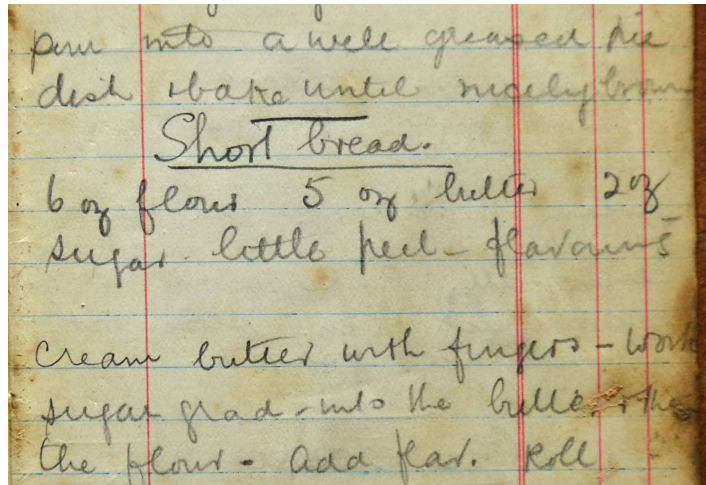 pour into a well greased pie
dish & bake until nicely brown
Short bread.
6 oz flour 5 oz butter 2 oz
sugar. little peel - flavouring
Cream butter with fingers - work
sugar grad - into the butter & then
the flour - add flav. Roll -